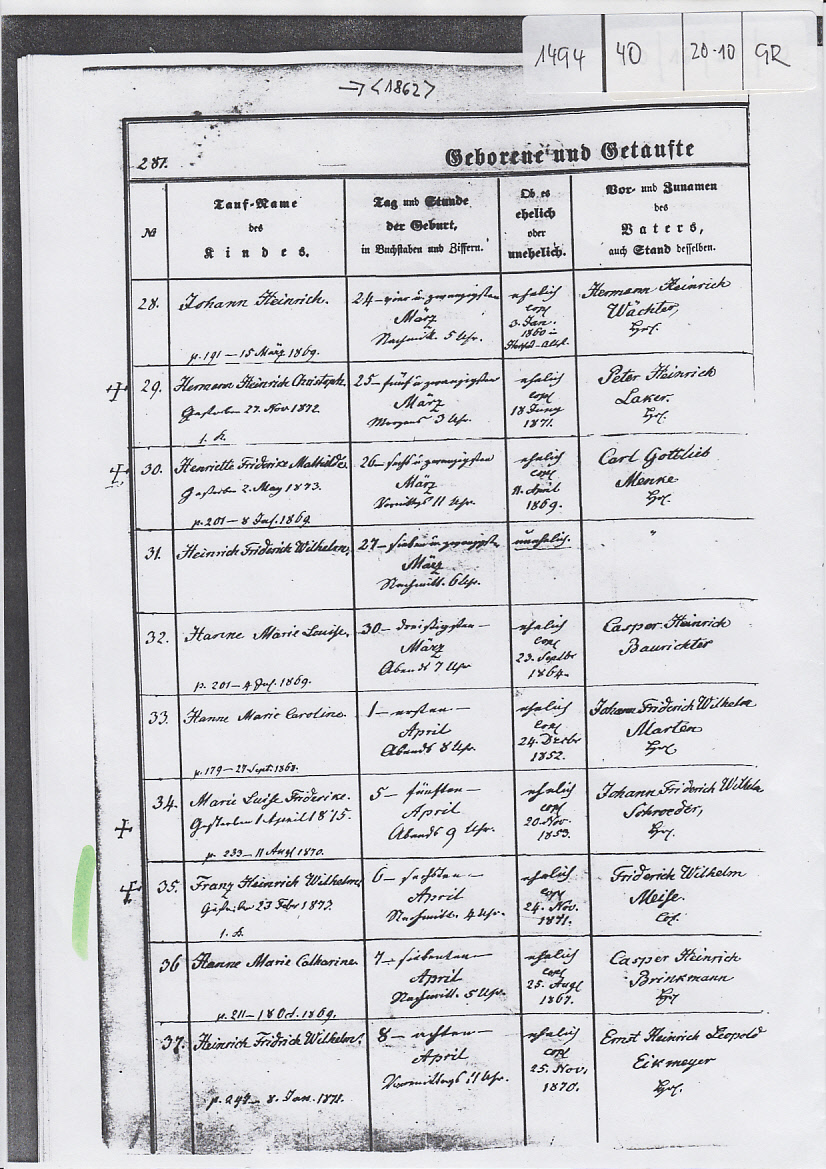 1494 40 20-10 GR
→ <1862>
287.
Geborene und Getaufte
№
Tauf-Name
des
Kindes.
Tag und Stunde
der Geburt,
in Buchstaben und Ziffern.
Ob es
ehelich
oder
unehelich.
Vor- und Zunamen
des
Vaters,
auch Stand desselben.
28. Johann Heinrich.
p. 191 — 15 März 1869.
24 — vier u zwanzigsten
März
Nachmitt. 5 Uhr.
ehelich
cop
3. Jan.
1860
Hermann Heinrich
Wächter,
29. Hermann Heinrich Christoph.
Gestorben 27. Nov 1872.
1. K.
25 — fünf u zwanzigsten
März
Morgens 3 Uhr.
ehelich
cop
18 Juny
1871.
Peter Heinrich
Laker.
30. Henriette Friderike Mathilde.
Gestorben 2. May 1873.
p. 201 — 8 Jul. 1869.
26 — sechs u zwanzigsten
März
Vormittgs 11 Uhr
ehelich
cop
11. April
1869.
Carl Gottlieb
Menke
31. Heinrich Friderich Wilhelm,
27 — sieben u zwanzigsten
März
Nachmitt. 6 Uhr.
unehelich.
"
32. Hanne Marie Louise.
p. 201 — 4 Jul. 1869.
30 — dreißigsten —
März
Abends 7 Uhr
ehelich
cop
23. Septbr
1864.
Casper Heinrich
Baurichter
33. Hanne Marie Caroline.
p. 179 — 27 Sept. 1868.
1 — ersten —
April
Abends 8 Uhr.
ehelich
cop
24. Dzbr
1852.
Johann Friderich Wilhelm
Marten
34. Marie Luise Friderike.
Gestorben 1 April 1875.
p. 233 — 11 Aug 1870.
5 — fünften —
April
Abends 9 Uhr.
ehelich
cop
20. Nov.
1853.
Johann Friderich Wilhelm
Schroeder,
35. Franz Heinrich Wilhelm,
Gestorben 23 Febr 1873.
1. K.
6 — sechsten —
April
Nachmitt. 4 Uhr.
ehelich
cop
24. Nov.
1871.
Friderich Wilhelm
Meise.
36 Hanne Marie Catharine.
p. 211 — 18 Oct. 1869.
7 — siebenten —
April
Nachmitt. 5 Uhr.
ehelich
cop
25. Aug
1867.
Casper Heinrich
Brinkmann
37. Heinrich Fridrich Wilhelm.
8. Jan. 1871.
8 — achten —
April
Vormittags 11 Uhr.
ehelich
cop
25. Nov.
1870.
Ernst Heinrich Leopold
Eikmeyer